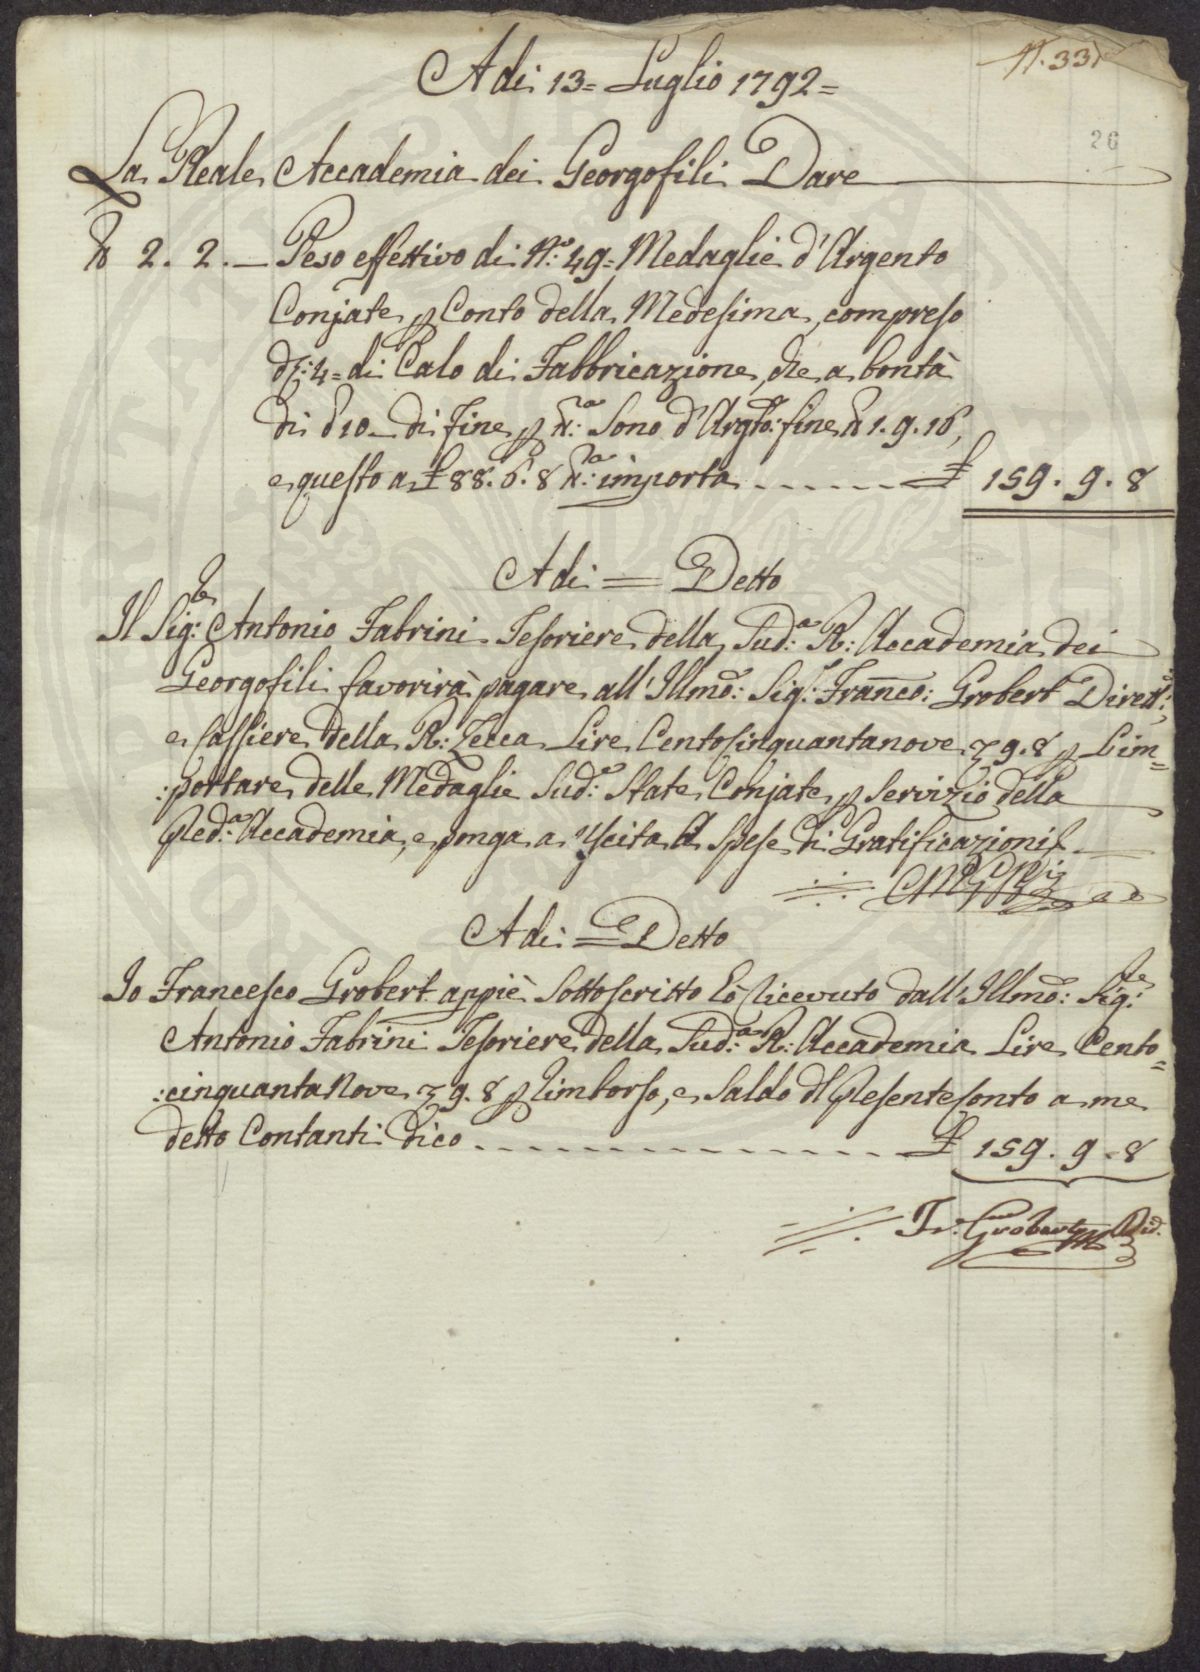 N. 33
26
Adi 13= Luglio 1792=
La Reale Accademia dei Georgofili Dare
℔ 2. 2. — Peso effettivo di N.º 49= Medaglie d'Argento
Conjate p Conto della Medesima, compreso
dr: 4= di Calo di Fabbricazione, che a bontà
di 10 — di fine p ℔.ª Sono d'Argto: fine ℔ 1. 9. 16,
e questo a £ 88. 6. 8 ℔.ª importa ........ £ 159. 9. 8
Adi = Detto
Il Sig:re Antonio Fabrini Tesoriere della Sud:ª R: Accademia dei
Georgofili favorirà pagare all'Illmo: Sig:r Franco: Grobert Dirett:
e Cassiere della R: Zecca Lire Centocinquantanove 9. 8 p L'im=
:portare delle Medaglie Sud:e State Conjate p Servizio della
Pred:ª Accademia, e ponga a Uscita a Spese di Gratificazioni
Adi = Detto
Io Francesco Grobert appiè Sottoscritto hò ricevuto dall'Illmo: Sig:re
Antonio Fabrini Tesoriere della Sud:ª R: Accademia Lire Cento=
:cinquantanove 9. 8 p rimborso, e Saldo del presente Conto a me
detto Contanti dico ............ £ 159. 9. 8
Fr: Grobert